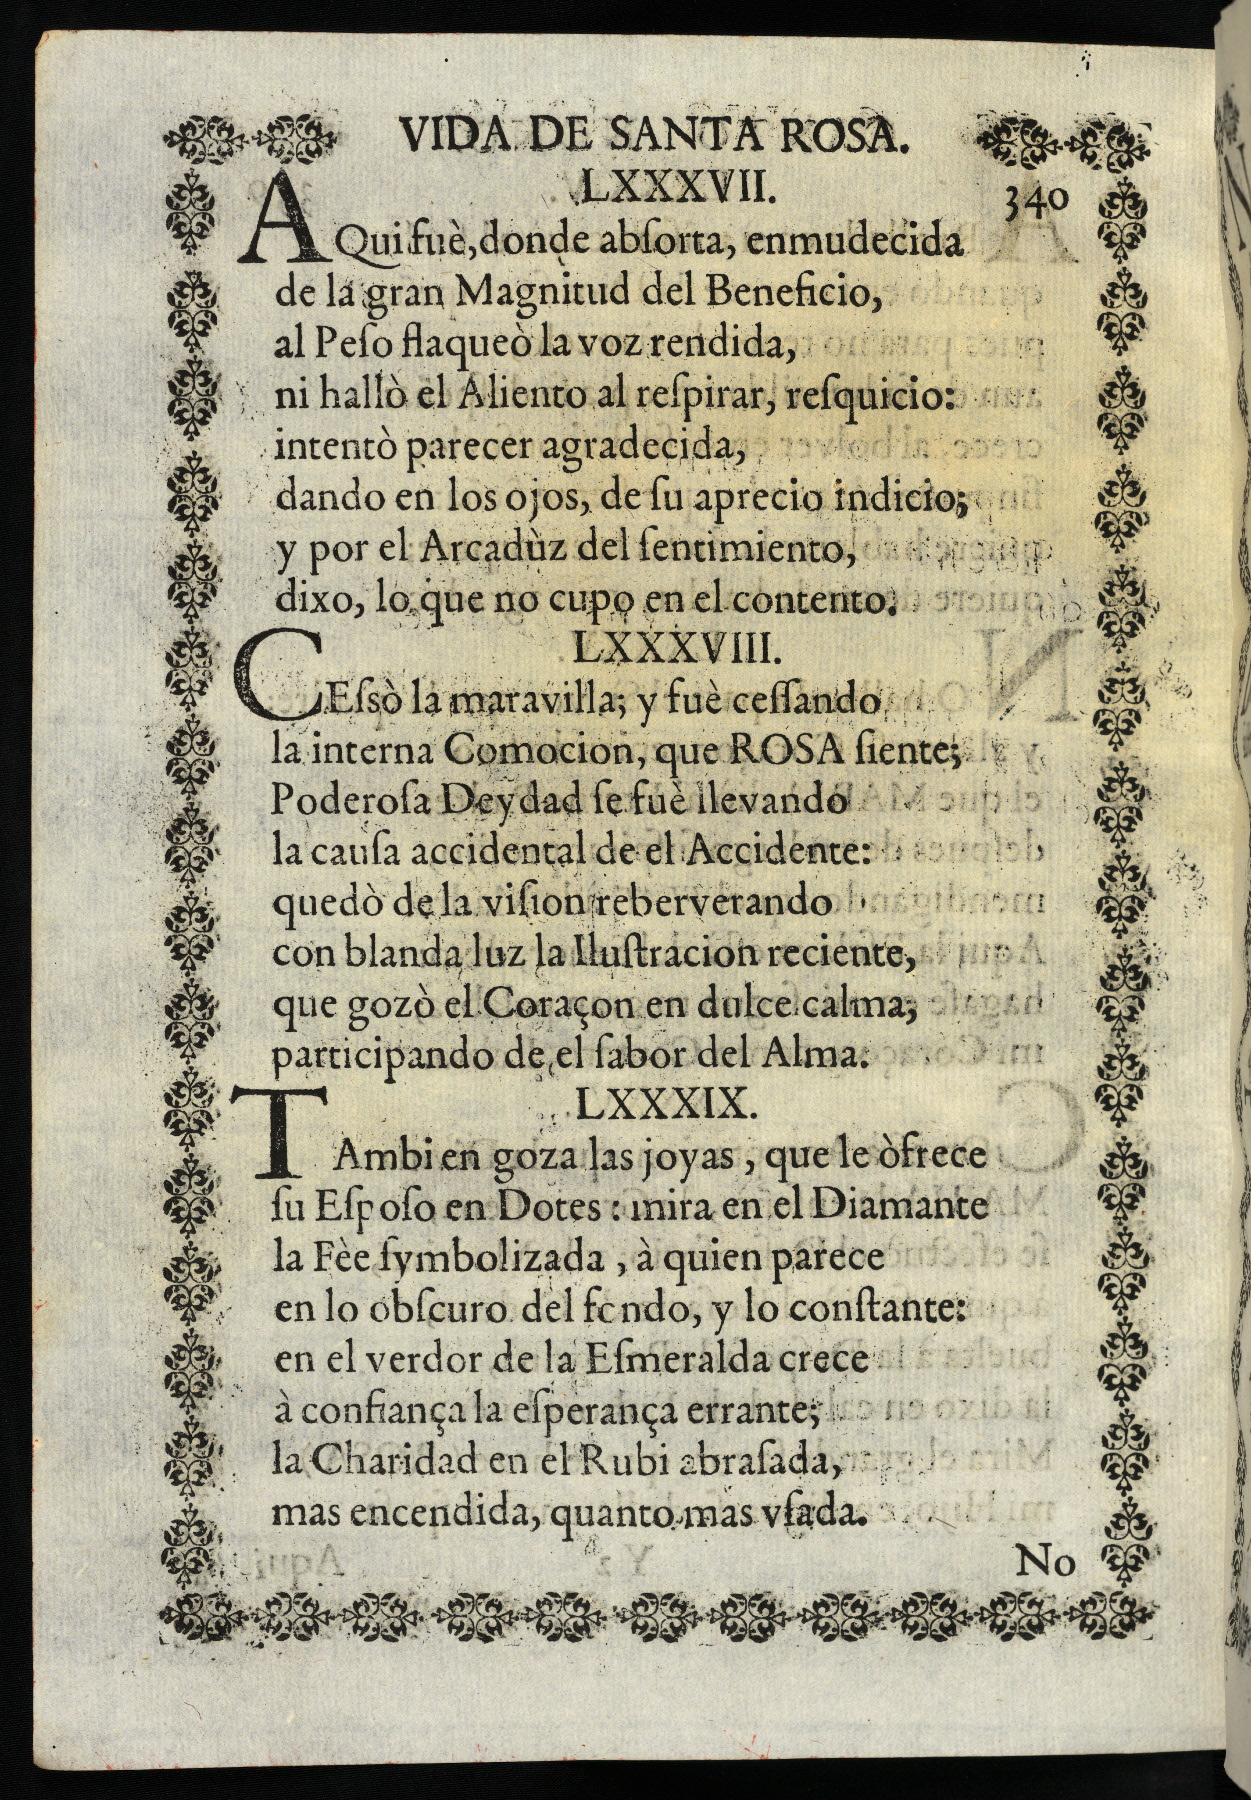 VIDA DE SANTA ROSA.
LXXXVII. 340
AQui fuè, donde abſorta, enmudecida
de la gran Magnitud del Beneficio,
al Peſo flaqueò la voz rendida,
ni hallò el Aliento al reſpirar, reſquicio:
intentò parecer agradecida,
dando en los ojos, de ſu aprecio indicio;
y por el Arcadùz del ſentimiento,
dixo, lo que no cupo en el contento.
LXXXVIII.
CEſsò la maravilla; y fuè ceſſando
la interna Comocion, que ROSA ſiente;
Poderoſa Deydad ſe fuè llevando
la cauſa accidental de el Accidente:
quedò de la viſion reberverando
con blanda luz la Iluſtracion reciente,
que gozò el Coraçon en dulce calma,
participando de el ſabor del Alma.
LXXXIX.
TAmbien goza las joyas, que le òfrece
ſu Eſpoſo en Dotes: mira en el Diamante
la Fèe ſymbolizada, à quien parece
en lo obſcuro del fondo, y lo conſtante:
en el verdor de la Eſmeralda crece
à confiança la eſperança errante;
la Charidad en el Rubi abraſada,
mas encendida, quanto mas vſada.
No